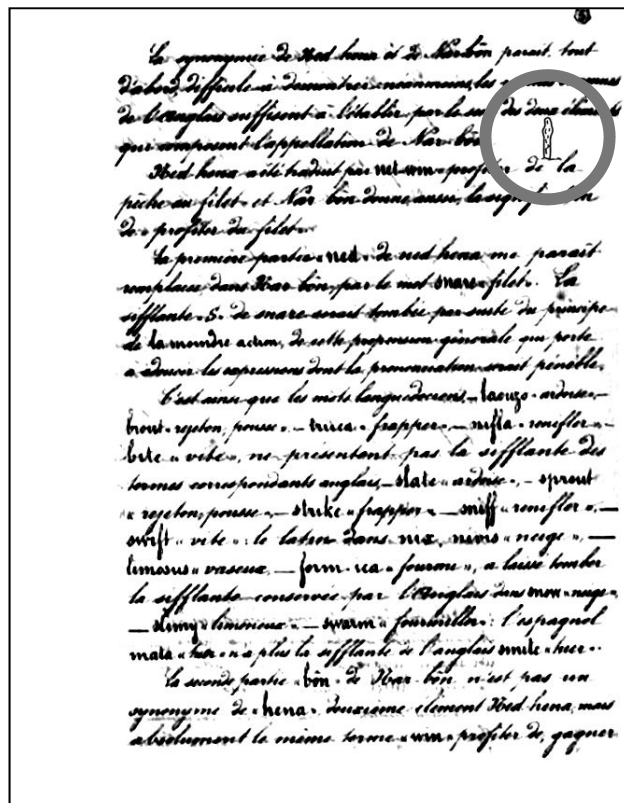 La synonymie de Ned hena et de Narbôn parait, tout
d'abord, difficile à démontrer; néanmoins, les
de l'anglais suffisent à l'établir par le sens des deux éléments
qui composent l'appellation de Nar bôn.
Ned hena a été traduit par net-win « profiter de la
pêche au filet » et Nar bôn donne, aussi, la signification
de « profiter du filet ».
La première partie « ned » de ned hena me parait
remplacée dans Nar bôn, par le mot snare « filet ». La
sifflante « S » de snare serait tombée par suite du principe
de la moindre action, de cette propension générale qui porte
à adoucir les expressions dont la prononciation serait pénible.
C'est ainsi que les mots languedociens, – laouzo « ardoise »
brout « rejeton, pousse », – truca « frapper », – nifla « renifler » –
bite « vite », ne présentent pas la sifflante des
termes correspondants anglais, – slate « ardoise », – sprout
« rejeton, pousse », – strike « frapper » – sniff « renifler », –
swift « vite »: le latin dans nix, nivis « neige », –
limosus « vaseux, – form-ica « fourmi », a laissé tomber
la sifflante conservée par l'anglais dans snow « neige »
– slimy « limoneux », – swarm « fourmiller »: l'espagnol
mata « tuer » n'a plus la sifflante de l'anglais smite « tuer ».
La seconde partie « bôn » de Nar bôn n'est pas un
synonyme de « hena » deuxième élément Ned hena, mais
absolument le même terme « win » profiter de, gagner